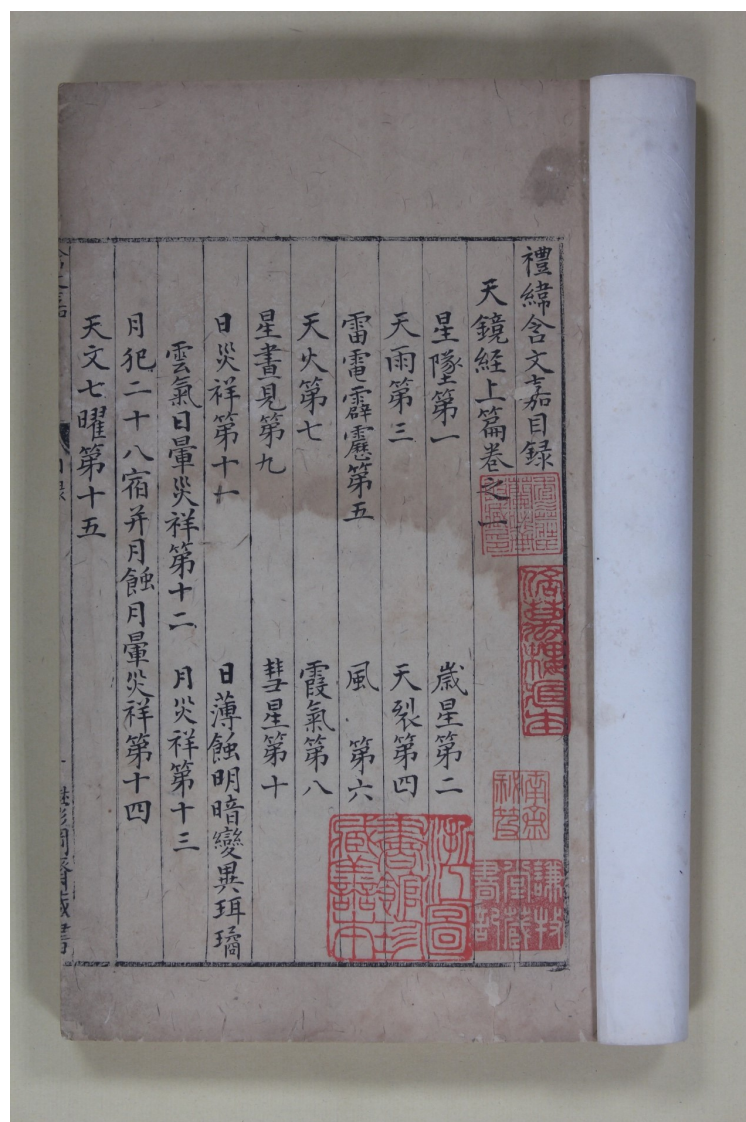 禮緯含文嘉目録
天鏡經上篇卷之一
星墜第一 歲星第二
天雨第三 天裂第四
雷電霹靂第五 風 第六
天火第七 霞氣第八
星晝見第九 彗星第十
日災祥第十一 日薄蝕明暗變異珥璚
雲氣日暈災祥第十二 月災祥第十三
月犯二十八宿并月蝕月暈災祥第十四
天文七曜第十五
浙江圖書館珍藏善本